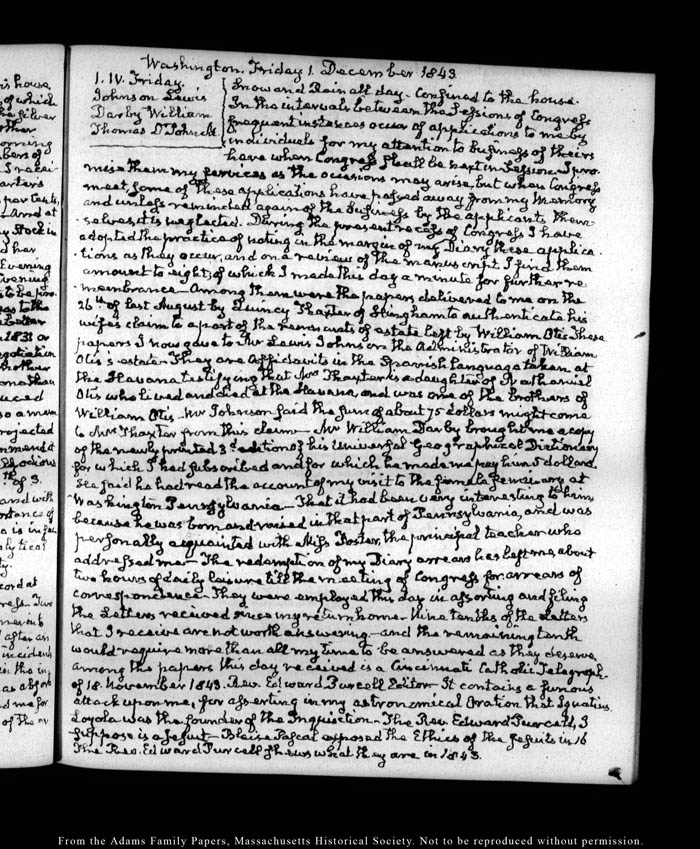 Washington. Friday 1. December 1843.
1. IV. Friday.
Johnson Lewis
Darby William
Thomas
Snow and Rain all day - Confined to the house.
In the intervals between the Sessions of Congress
frequent instances occur of applications to me by
individuals for my attention to business of theirs
here when Congress shall be next in Session. I pro-
mise them my services as the occasions may arise, but when Congress
meet, some of these applications have passed away from my Memory
and unless reminded again of the business by the applicants them-
selves, it is neglected. During the present recess of Congress I have
adopted the practice of noting in the margin of my Diary these applica-
tions as they occur, and on a review of the manuscript I find them
amount to eight, of which I made this day a minute for further re-
membrance - Among them were the papers delivered to me on the
26th of last August by Quincy Thaxter of Hingham to authenticate his
wife's claim to a part of the remnants of estate left by William Otis. These
papers I now gave to Mr Lewis Johnson the Administrator of William
Otis's estate - They are Affidavits in the Spanish language taken at
the Havana testifying that Mrs Thaxter is a daughter of Nathaniel
Otis who lived and died at the Havana, and was one of the brothers of
William Otis. Mr Johnson said the sum of about 75 dollars might come
to Mrs Thaxter from this claim - Mr William Darby brought me a copy
of the newly printed 3d edition of his Universal Geographical Dictionary
for which I had subscribed and for which he made me pay him 5 dollars.
He said he had read the account of my visit to the female Seminary at
Washington Pennsylvania - That it had been very interesting to him,
because he was born and raised in that part of Pennsylvania, and was
personally acquainted with Miss Foster, the principal teacher who
addressed me - The redemption of my Diary arrears has left me, about
two hours of daily leisure till the meeting of Congress for arrears of
correspondence. They were employed this day in assorting and filing
the Letters received since my return home - Nine tenths of the Letters
that I receive are not worth answering - and the remaining tenth
would require more than all my time to be answered as they deserve.
among the papers this day received is a Cincinnati Catholic Telegraph
of 18. November 1843. Rev. Edward Purcell Editor - It contains a furious
attack upon me, for asserting in my astronomical Oration that Ignatius
Loyola was the founder of the Inquisition - The Rev. Edward Purcell, I
suppose is a Jesuit - Blaise Pascal exposed the Ethics of the Jesuits in 16
The Rev. Edward Purcell shews what they are in 1843.
From the Adams Family Papers, Massachusetts Historical Society. Not to be reproduced without permission.